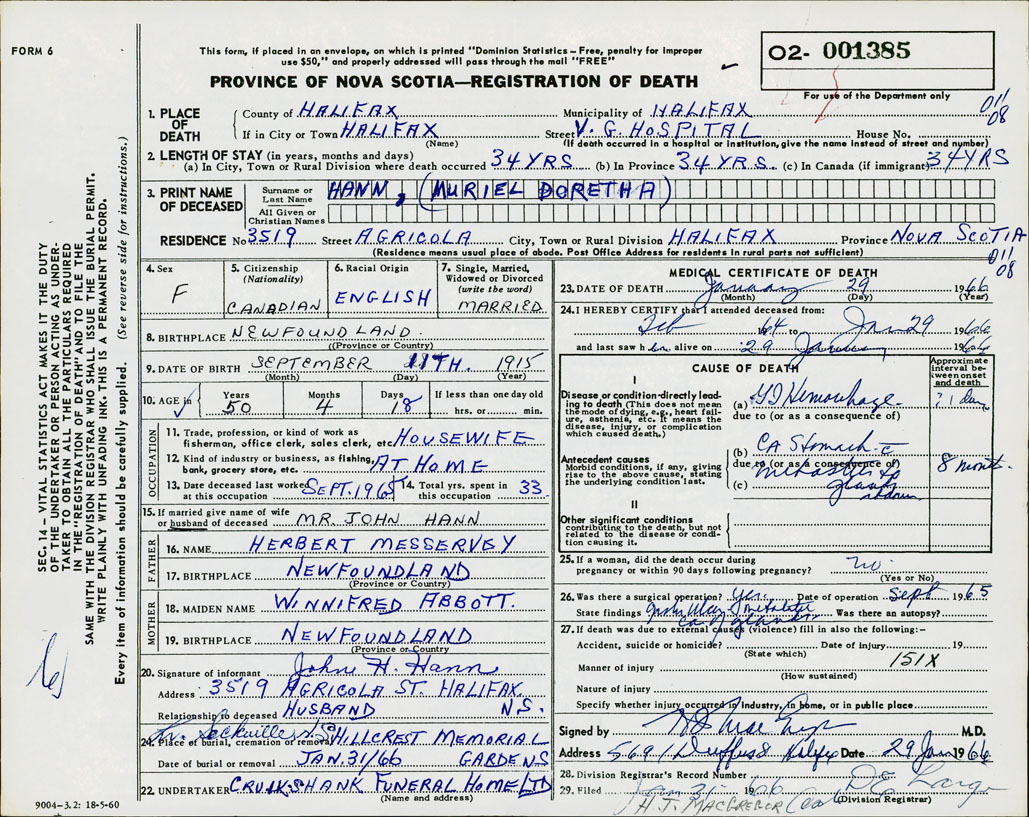 FORM 6
This form, if placed in an envelope, on which is printed "Dominion Statistics - Free, penalty for improper
use $50," and properly addressed will pass through the mail "FREE"
PROVINCE OF NOVA SCOTIA—REGISTRATION OF DEATH
02- 001385
For use of the Department only
011
08
1. PLACE OF DEATH
County of HALIFAX Municipality of HALIFAX
If in City or Town HALIFAX Street V. G. HOSPITAL House No.
(Name) (If death occurred in a hospital or institution, give the name instead of street and number)
2. LENGTH OF STAY (in years, months and days)
(a) In City, Town or Rural Division where death occurred 34 YRS (b) In Province 34 YRS. (c) In Canada (if immigrant) 34 YRS
3. PRINT NAME OF DECEASED
Surname or Last Name HANN, (MURIEL DORETHA)
All Given or Christian Names
RESIDENCE No 3519 Street AGRICOLA City, Town or Rural Division HALIFAX Province NOVA SCOTIA
(Residence means usual place of abode. Post Office Address for residents in rural parts not sufficient)
011
08
4. Sex F
5. Citizenship (Nationality) CANADIAN
6. Racial Origin ENGLISH
7. Single, Married, Widowed or Divorced (write the word) MARRIED
8. BIRTHPLACE NEWFOUNDLAND.
(Province or Country)
9. DATE OF BIRTH SEPTEMBER 11TH. 1915
(Month) (Day) (Year)
10. AGE in Years 50 Months 4 Days 18 If less than one day old
hrs. or min.
OCCUPATION
11. Trade, profession, or kind of work as
fisherman, office clerk, sales clerk, etc. HOUSEWIFE
12. Kind of industry or business, as fishing,
bank, grocery store, etc. AT HOME
13. Date deceased last worked at this occupation SEPT. 1965 14. Total yrs. spent in this occupation 33
15. If married give name of wife
or husband of deceased MR. JOHN HANN
FATHER
16. NAME HERBERT MESSERVEY
17. BIRTHPLACE NEWFOUNDLAND
(Province or Country)
MOTHER
18. MAIDEN NAME WINNIFRED ABBOTT.
19. BIRTHPLACE NEWFOUNDLAND
(Province or Country)
20. Signature of informant John H. Hann
Address 3519 AGRICOLA ST. HALIFAX
Relationship to deceased HUSBAND N.S.
Sackville N.S.
Place of burial, cremation or removal HILLCREST MEMORIAL
Date of burial or removal JAN. 31/66 GARDENS
22. UNDERTAKER CRUIKSHANK FUNERAL HOME LTD
(Name and address)
MEDICAL CERTIFICATE OF DEATH
23. DATE OF DEATH January 29 1966
(Month) (Day) (Year)
24. I HEREBY CERTIFY that I attended deceased from:
Feb 64 to Jan 29 1966
and last saw her alive on 29 January 1966
CAUSE OF DEATH
Approximate interval between onset and death
I
Disease or condition directly leading to death (This does not mean
the mode of dying, e.g., heart failure, asthenia, etc. It means the
disease, injury, or complication
which caused death.)
(a) GI Hemorrhage
due to (or as a consequence of)
Antecedent causes
Morbid conditions, if any, giving
rise to the above cause, stating
the underlying condition last.
(b) CA Stomach c̄
due to (or as a consequence of)
(c) glands
8 mont.
II
Other significant conditions
contributing to the death, but not
related to the disease or condition causing it.
25. If a woman, did the death occur during
pregnancy or within 90 days following pregnancy? no.
(Yes or No)
26. Was there a surgical operation? yes. Date of operation Sept 1965
State findings Was there an autopsy?
27. If death was due to external causes (violence) fill in also the following:—
Accident, suicide or homicide? Date of injury 19
(State which)
151X
Manner of injury
(How sustained)
Nature of injury
Specify whether injury occurred in Industry, in home, or in public place
Signed by M.D.
Address 5691 Duffus St Halifax Date 29 Jan 1966
28. Division Registrar's Record Number
29. Filed Jan 31 1966
(Division Registrar)
H. J. MACGREGOR
SEC. 14 - VITAL STATISTICS ACT MAKES IT THE DUTY
OF THE UNDERTAKER OR PERSON ACTING AS UNDER-
TAKER TO OBTAIN ALL THE PARTICULARS REQUIRED
IN THE "REGISTRATION OF DEATH" AND TO FILE THE
SAME WITH THE DIVISION REGISTRAR WHO SHALL ISSUE THE BURIAL PERMIT.
WRITE PLAINLY WITH UNFADING INK. THIS IS A PERMANENT RECORD.
Every item of information should be carefully supplied. (See reverse side for instructions.)
9004-3.2: 18-5-60